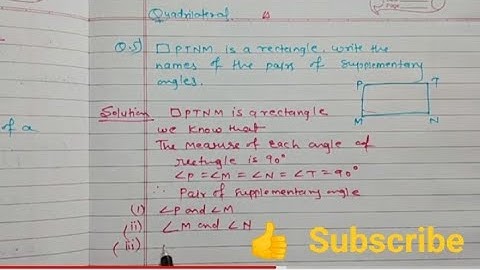 Quadrilateral.
Q.5) □PTNM is a rectangle. write the
names of the pairs of supplementary
angles.
P T
M N
Solution □PTNM is a rectangle
we know that
The measure of each angle of
rectangle is 90°
∠P = ∠M = ∠N = ∠T = 90°
∴ Pair of supplementary angle
(i) ∠P and ∠M
(ii) ∠M and ∠N
(iii)
of a
Page
Subscribe